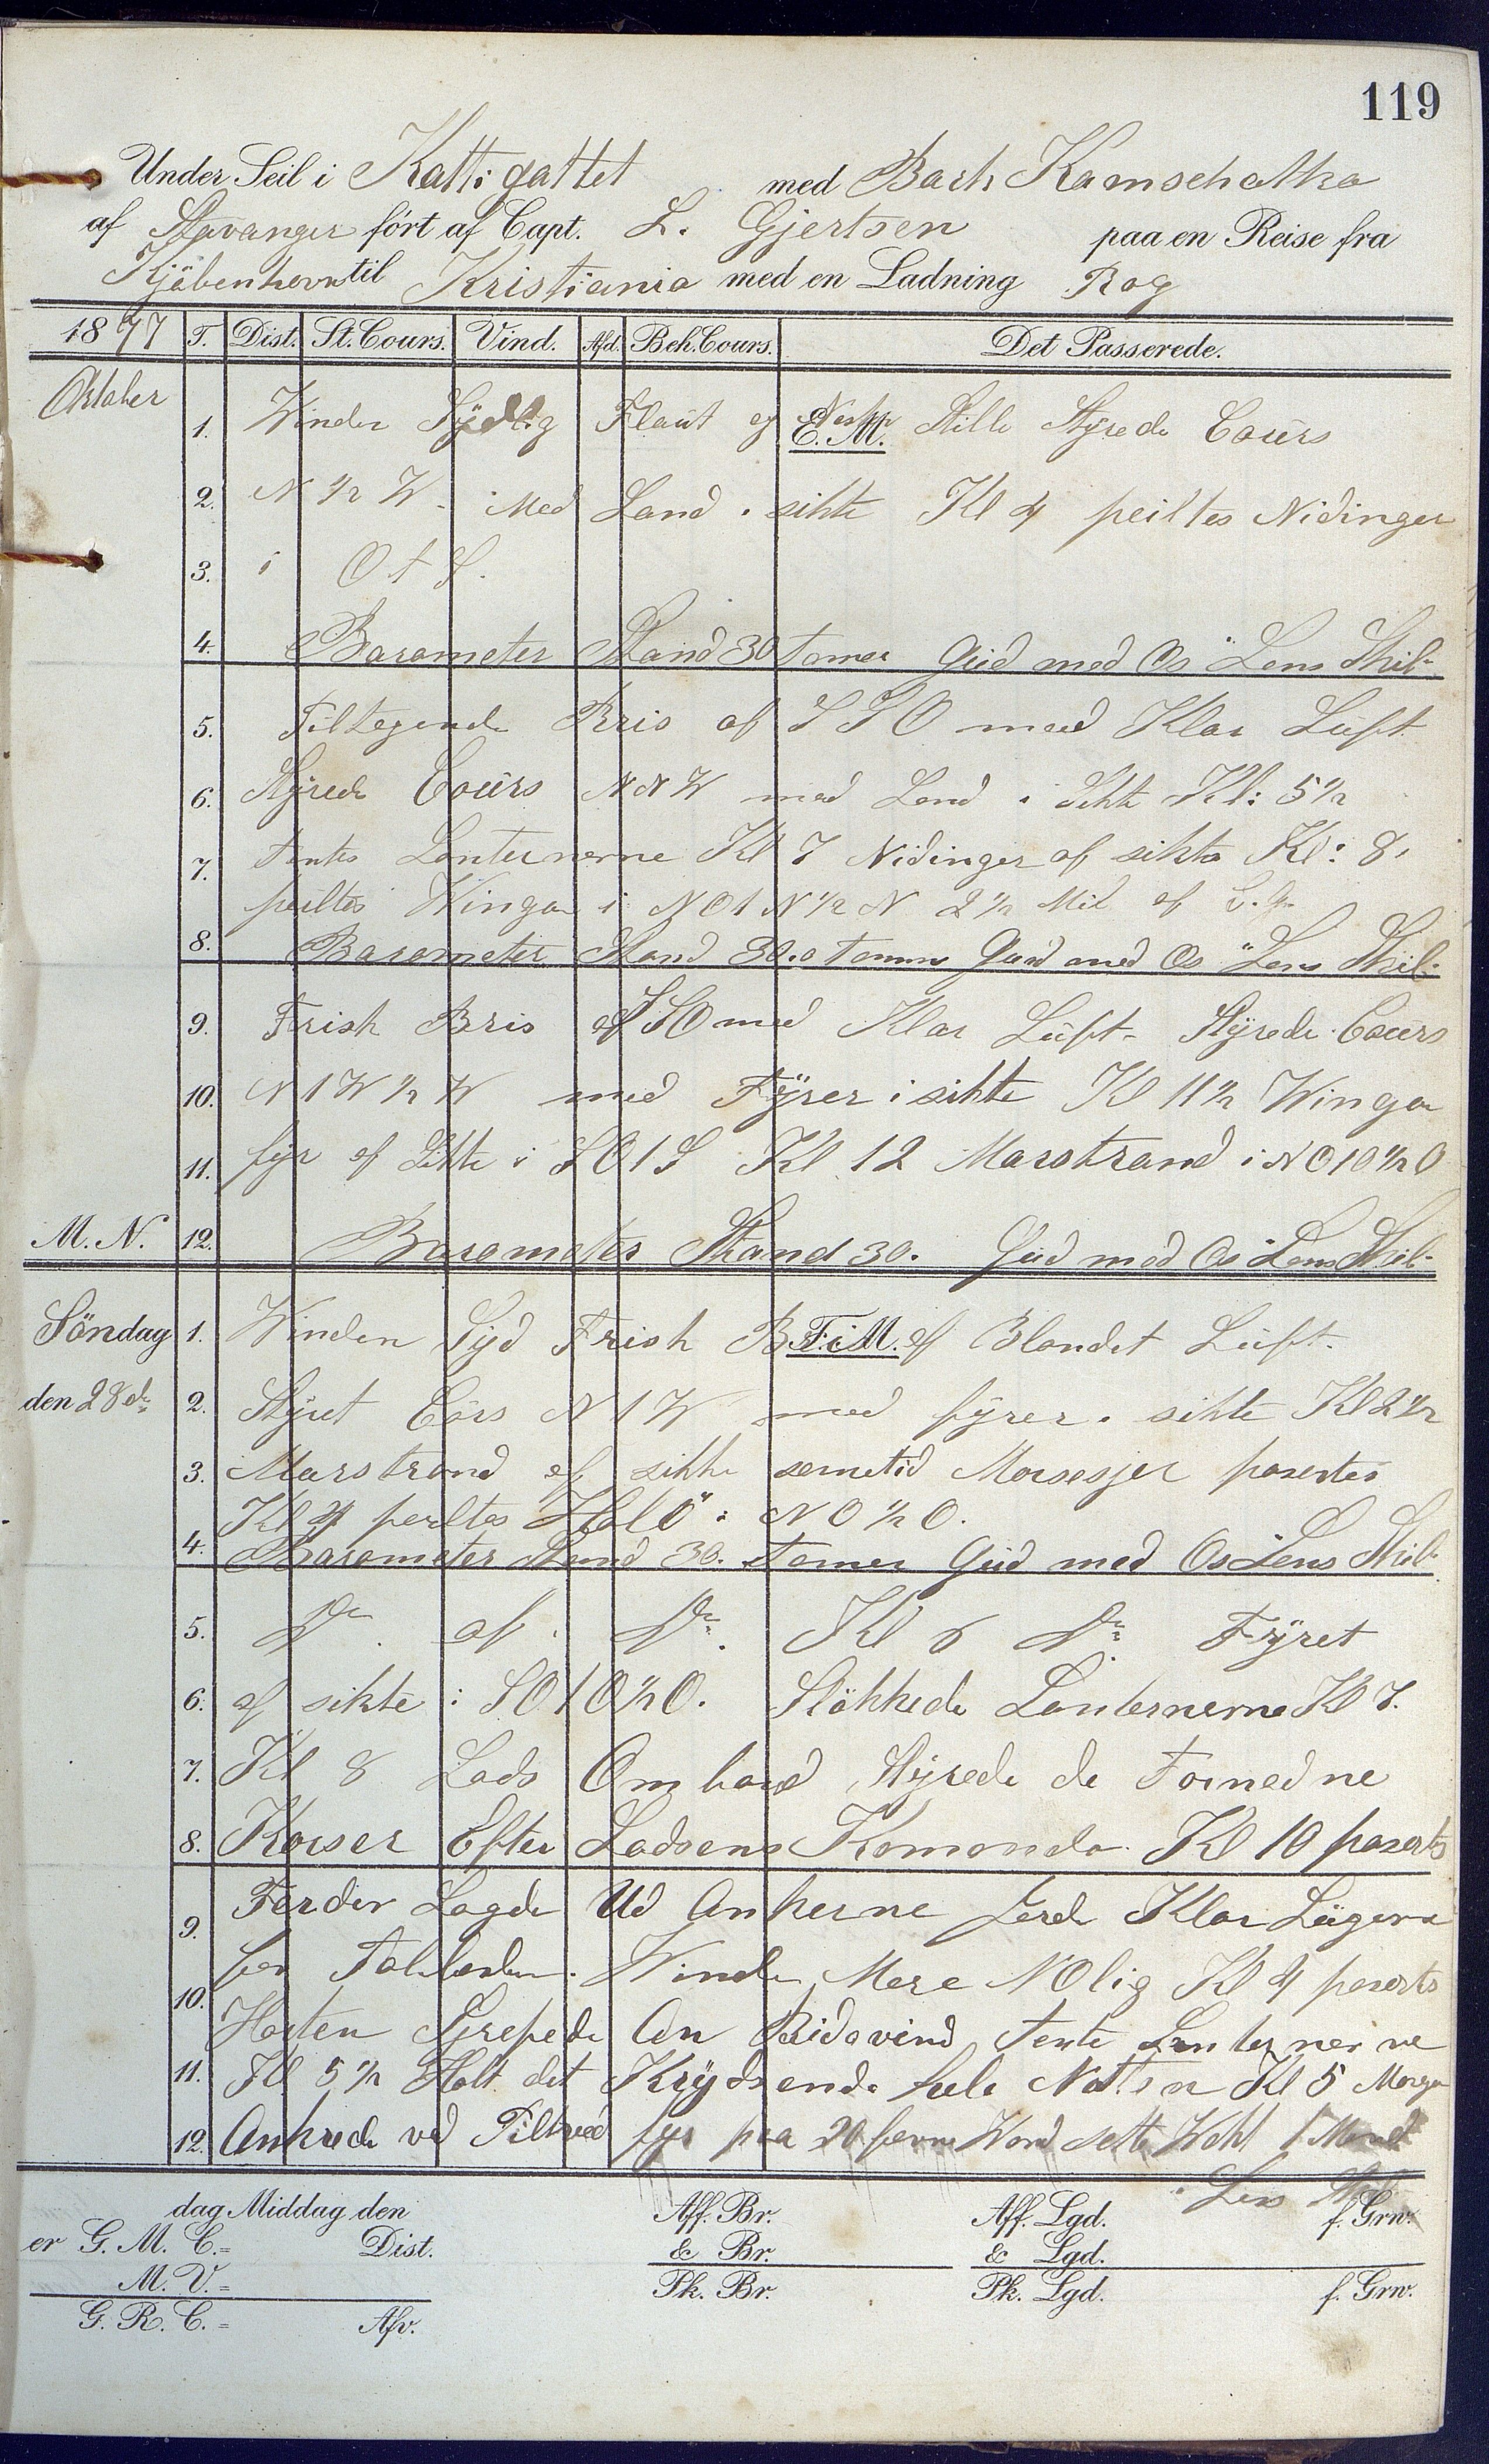 119
Under Seil i Kattigattet med Bark Kamschatka
af Stavanger fört af Capt. L. Gjertsen paa en Reise fra
Kjöbenhavn til Kristiania med en Ladning Rog
1877 T. Dist. St. Cours. Vind. Afd. Beh. Cours. Det Passerede.
Oktober
E. M.
1. Winden Sÿdlig Flaut og Stille Stÿrede Coürs
2. N ½ W. Med Land i sikte Kl 4 peiltes Nidingen
3. i O t S.
4. Barometer Stand 30 tomer Güd med Os Lens Skib
5. Tiltagende Bris af S S O med Klar Lüft
6. Stÿrede Coürs N N W med Land i Sikte Kl: 5½
7. tentes Lanternerne Kl 7 Nidingen af sikte Kl: 8.
peiltes Wingan i N O t N ½ N 2½ Mil af
8. Barometer Stand 30.0 tommer Güd med Os Lens Skib.
9. Frisk Bris af S S O med Klar Lüft. Stÿrede Coürs
10. N t W ½ W med Fÿrer i sikte Kl 11½ Winga
11. fyr af Sikte i S O t S Kl 12 Marstrand i N O t O ½ O
M. N. 12. Barometer Stand 30. Güd med Os Lens Skib.
F. M.
Söndag 1. Winden Sÿd Frisk af Blandet Lüft.
den 28de 2. Stÿret Cörs N t W med fÿrer i sikte Kl 2½
3. Marstrand af sikte sametid Morsesjer pasertes
Kl 4 peiltes Halö i N O ½ O.
4. Barometer Stand 30. tomer Güd med Os Lens Skib
5. Do af Do. Kl 6 Do Fÿret
6. af sikte i S O t O ½ O. Slökkede Lanternerne Kl 7.
7. Kl 8 Lods Ombord Stÿrede de Fornedne
8. Korser Efter Lodsens Komando Kl 10 paserts
9. Ferder Lagde Ud Ankerne Klar
10. for Winden Mere N Olig Kl 4 paserts
Horten An Bidevind tente Lanternerne
11. Kl 5½ Holt det Krÿdsende hele Natten Kl 5 Morgen
12. Ankrede ved fyr paa 20 Wand sette 1 Mand
Lens Skib
dag Middag den Aff. Br. Aff. Lgd. f. Grw.
er G. M. C. = Dist. & Br. & Lgd.
M. V. = Pk. Br. Pk. Lgd. f. Grw.
G. R. C. = Afv.